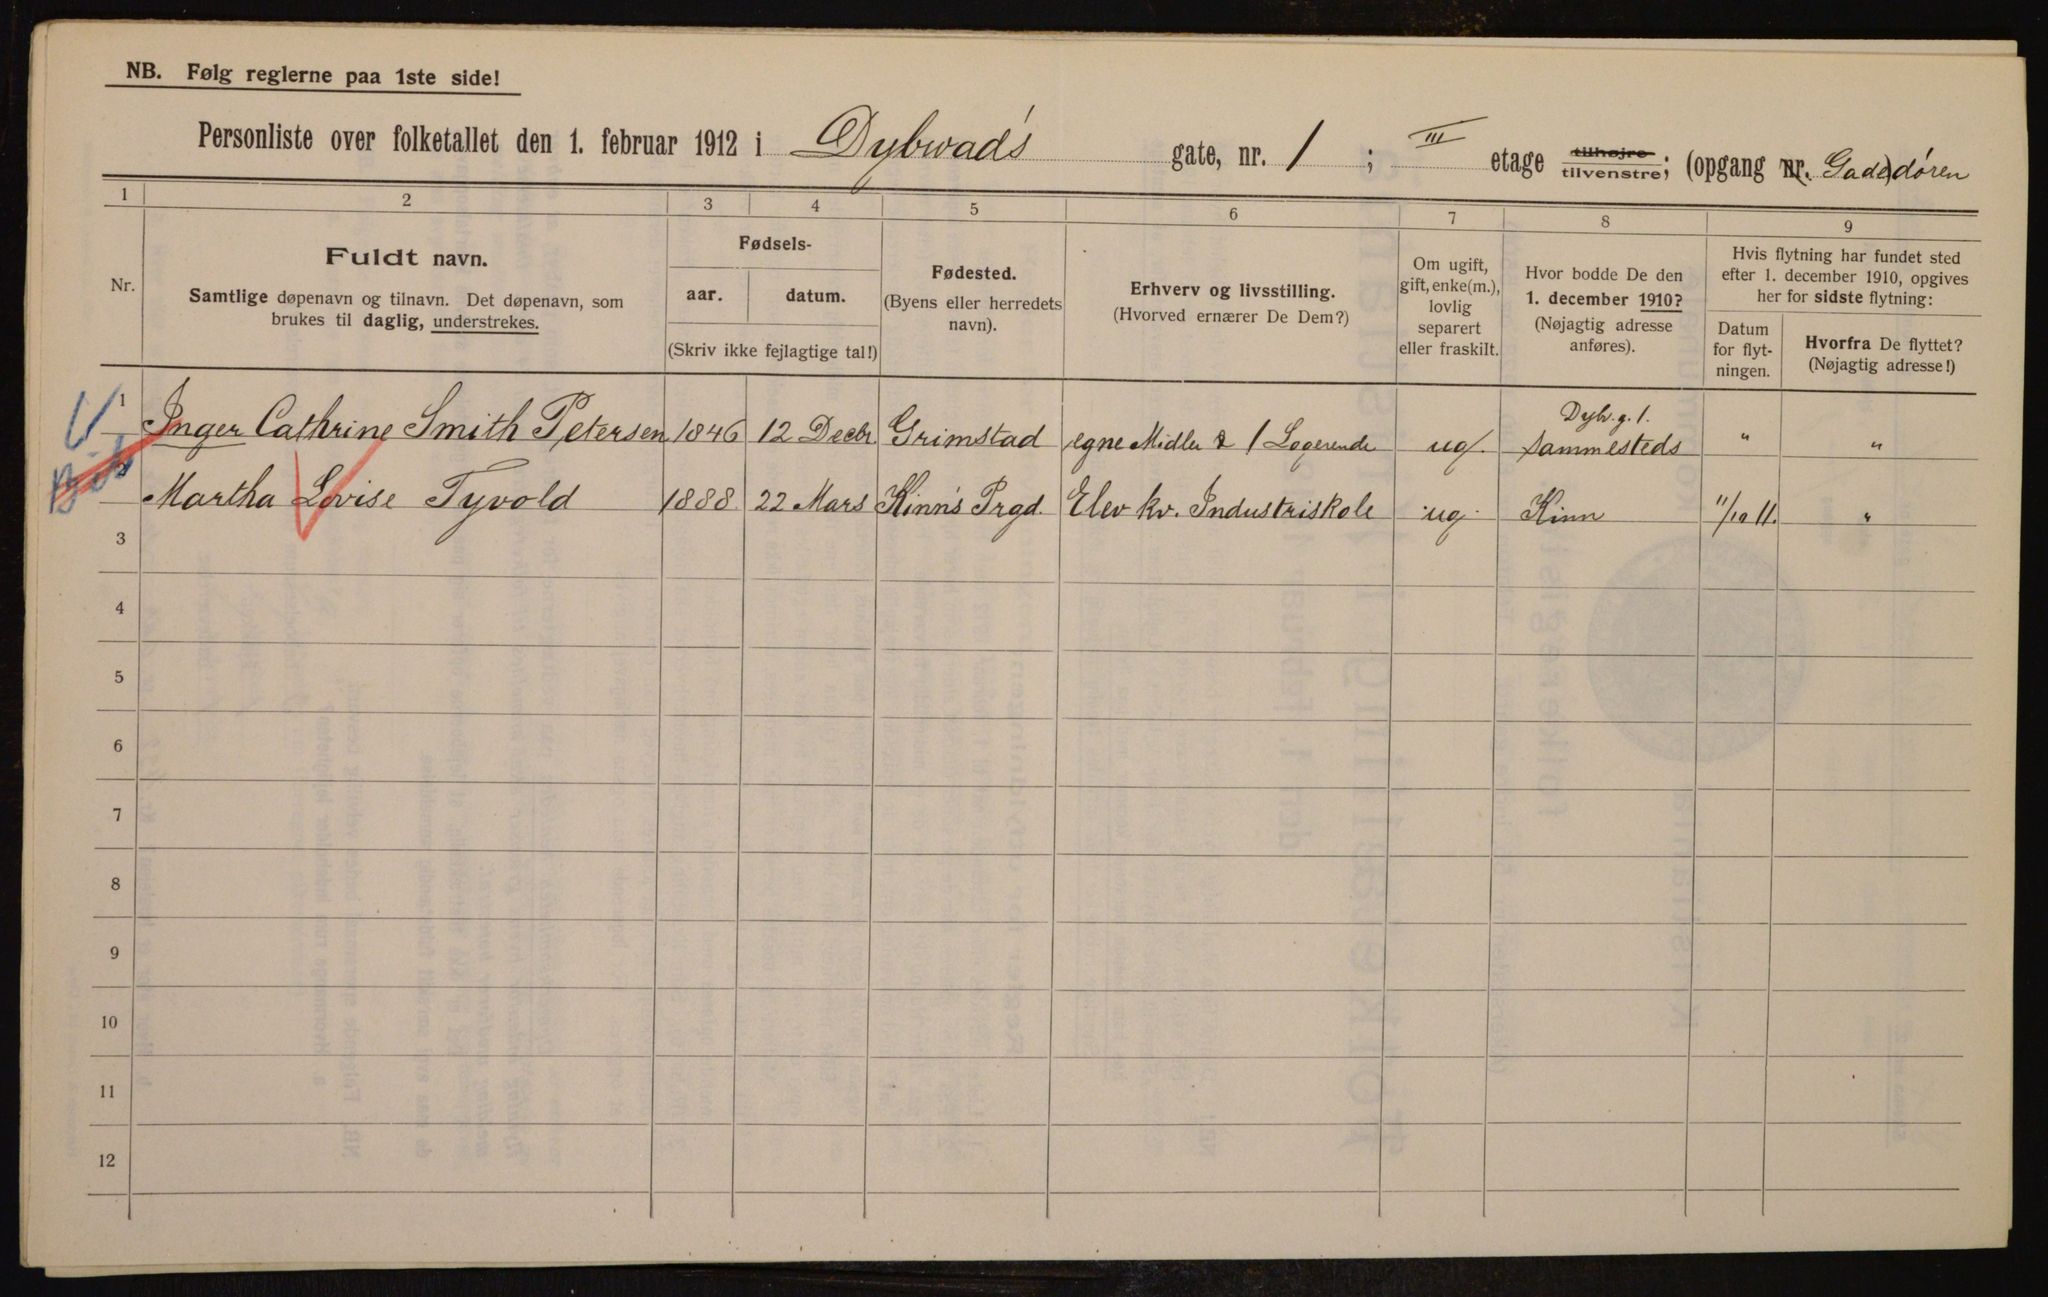 NB. Følg reglerne paa 1ste side!
Personliste over folketallet den 1. februar 1912 i Dybwad's gate, nr. 1 ; III etage tilhøjre tilvenstre; (opgang nr. Gade) døren
1 2 3 4 5 6 7 8 9
Nr.
Fuldt navn.
Samtlige døpenavn og tilnavn. Det døpenavn, som
brukes til daglig, understrekes.
Fødsels-
aar. datum.
(Skriv ikke fejlagtige tal!)
Fødested.
(Byens eller herredets
navn).
Erhverv og livsstilling.
(Hvorved ernærer De Dem?)
Om ugift,
gift, enke(m.),
lovlig
separert
eller fraskilt.
Hvor bodde De den
1. december 1910?
(Nøjagtig adresse
anføres).
Hvis flytning har fundet sted
efter 1. december 1910, opgives
her for sidste flytning:
Datum
for flyt-
ningen.
Hvorfra De flyttet?
(Nøjagtig adresse!)
Dybv. g. 1.
1 Inger Cathrine Smith Petersen 1846 12 Decbr Grimstad egne Midler & 1 Logerende ug. sammesteds " "
2 Martha Lovise Tyvold 1888 22 Mars Kinn's Prgd. Elev kv. Industriskole ug. Kinn 11/10 11. "
3
4
5
6
7
8
9
10
11
12